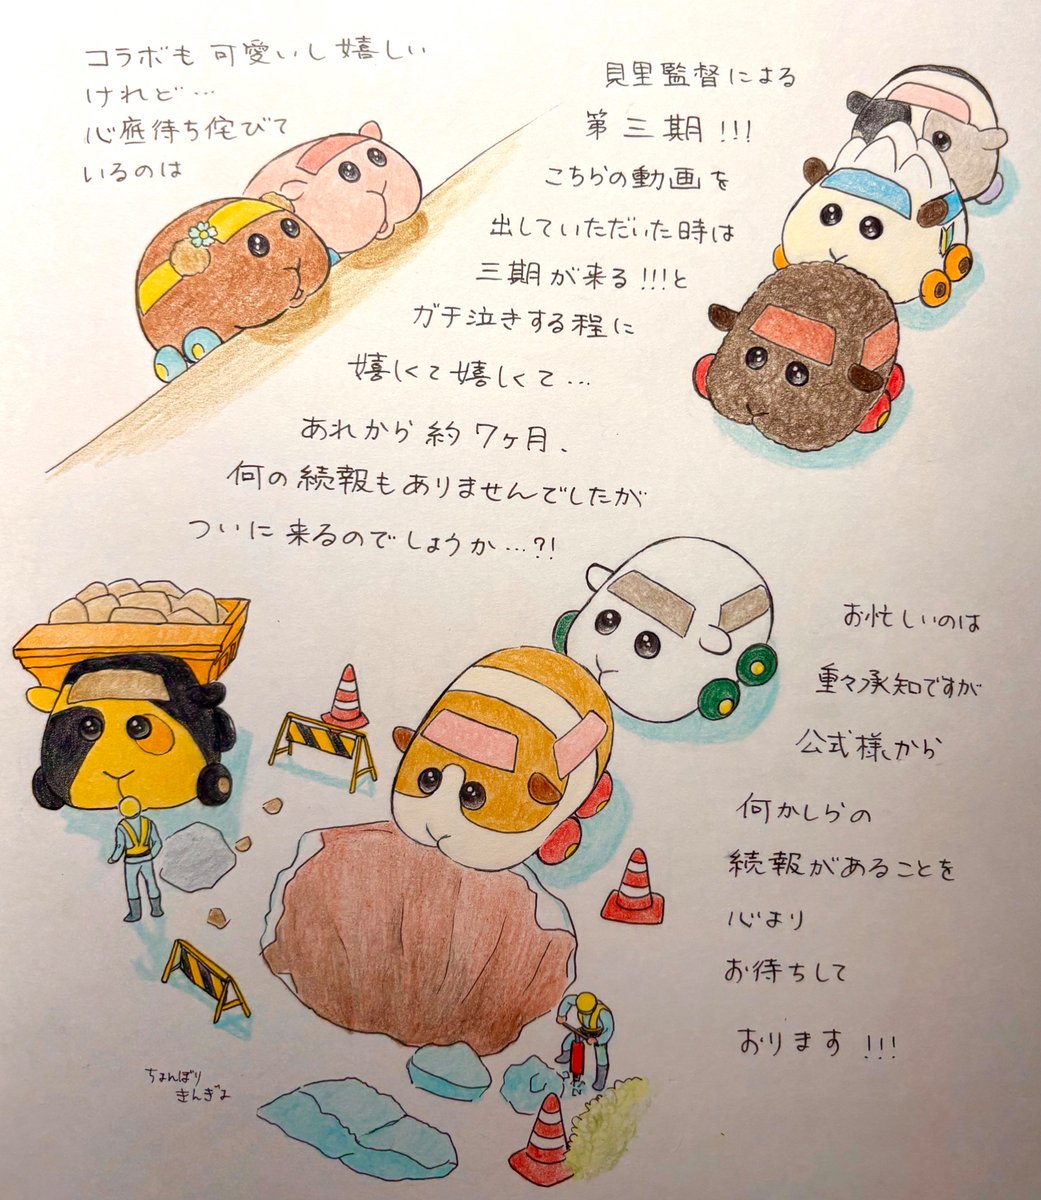 コラボも可愛いし嬉しい
けれど…
心底待ち侘びて
いるのは
見里監督による
第三期!!!
こちらの動画を
出していただいた時は
三期が来る!!!と
ガチ泣きする程に
嬉しくて嬉しくて…
あれから約7ヶ月、
何の続報もありませんでしたが
ついに来るのでしょうか…?!
お忙しいのは
重々承知ですが
公式様から
何かしらの
続報があることを
心より
お待ちして
おります!!!
ちょんぼり
きんぎょ